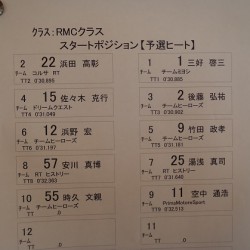 クラス:RMCクラス
スタートポジション【予選ヒート】
2 22 浜田 高彰
チーム コルサ RT
TT2
1 1 三好 啓三
チーム チームミヨシ
TT1
4 15 佐々木 克行
チーム ドリームクエスト
TT4
3 2 後藤 弘祐
チーム チームヒーローズ
TT3
6 12 浜野 宏
チーム チームヒーローズ
TT6
5 9 竹田 政孝
チーム チームヒーローズ
TT5
8 57 安川 真博
チーム RT ヒストリー
TT8
7 25 湯浅 真司
チーム RT ヒストリー
TT7
10 55 時久 文親
チーム チームヒーローズ
TT 0
9 11 空中 通浩
チーム PrimoMotoreSport
TT9
12
チーム
TT 0
11
チーム
TT 0